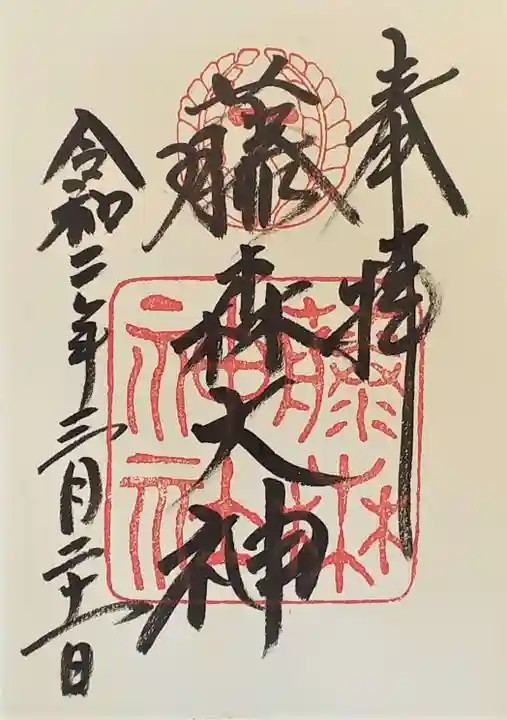 奉拝
藤森大神
令和二年三月二十一日
藤森
神社